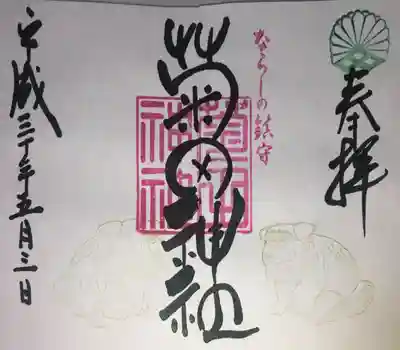 奉拝
ならしの鎮守
菊田神社
菊田
神社
平成三十年五月三日